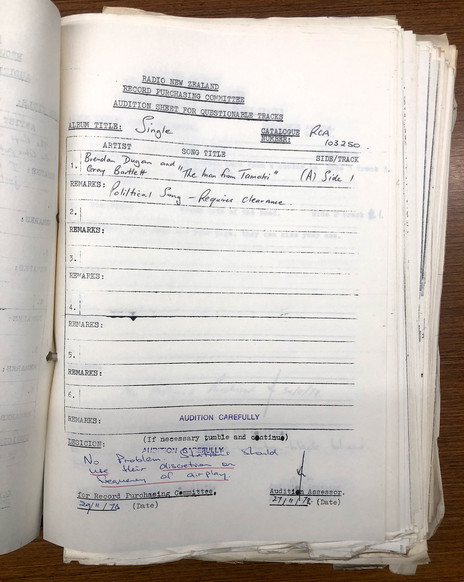 RADIO NEW ZEALAND
RECORD PURCHASING COMMITTEE
AUDITION SHEET FOR QUESTIONABLE TRACKS
ALBUM TITLE: Single CATALOGUE NUMBER: RCA 103250
ARTIST SONG TITLE SIDE/TRACK
1. Brendan Dugan and Gray Bartlett "The Man from Tamaki" (A) Side 1
REMARKS: Political Song - Requires clearance
2.
REMARKS:
3.
REMARKS:
4.
REMARKS:
5.
REMARKS:
6.
REMARKS: AUDITION CAREFULLY
DECISION: (If necessary tumble and continue)
AUDITION CAREFULLY
No Problem. Stations should
use their discretion on
frequency of airplay.
for Record Purchasing Committee. Audition Assessor.
(Date) (Date)